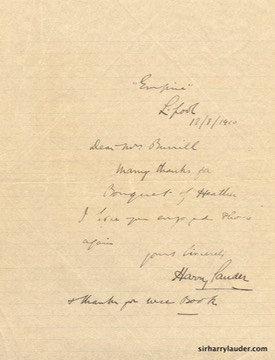 "Empire"
L.pool
18/8/1910
Dear Mrs Burrill
Many thanks for
Bouquet of Heather
I hope you enjoyed Show
again
yours Sincerely
Harry Lauder
+ thanks for wee Book
sirharrylauder.com